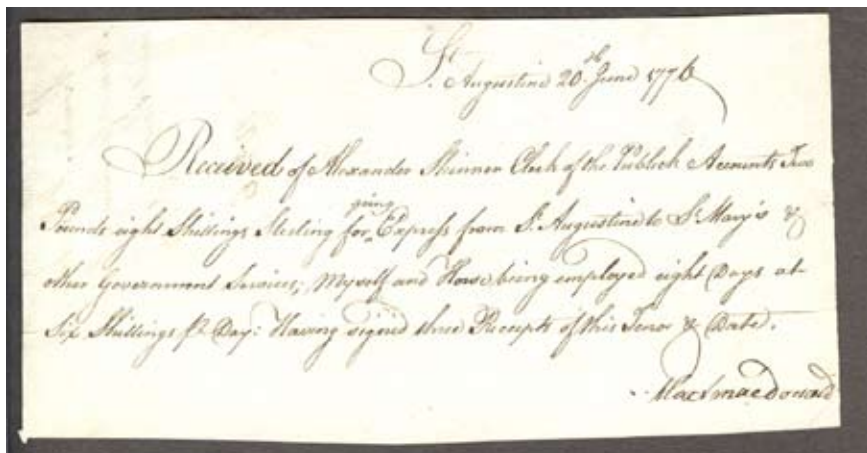 St. Augustine 20th. June 1776
Received of Alexander Skinner Clerk of the Publick Accounts Two
Pounds eight Shillings Sterling for going Express from St. Augustine to St. Mary's &
other Government Services; Myself and Horse being employed eight Days at
Six Shillings pr Day: Having signed three Receipts of this Tenor & Date.
macdonald